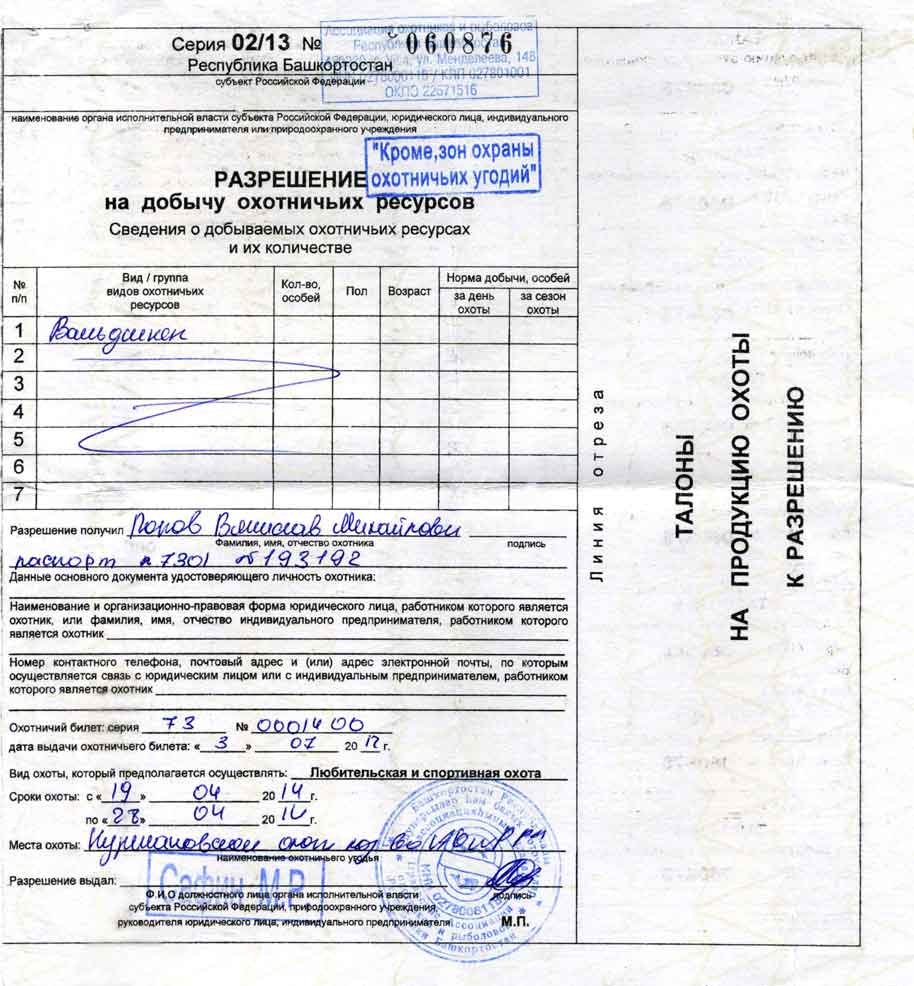 Ассоциация охотников и рыболовов
Серия 02/13 № 060876
Республики Башкортостан
ул. Менделеева, 148
Республика Башкортостан
КПП 027801001
субъект Российской Федерации
ОКПО 22671516
наименование органа исполнительной власти субъекта Российской Федерации, юридического лица, индивидуального
предпринимателя или природоохранного учреждения
"Кроме,зон охраны
охотничьих угодий"
РАЗРЕШЕНИЕ
на добычу охотничьих ресурсов
Сведения о добываемых охотничьих ресурсах
и их количестве
№ п/п
Вид / группа видов охотничьих ресурсов
Кол-во, особей
Пол
Возраст
Норма добычи, особей
за день охоты
за сезон охоты
1 Вальдшнеп
2
3
4
5
6
7
Разрешение получил Попов Вячислав Михайлович
Фамилия, имя, отчество охотника подпись
паспорт n 7301 N 193192
Данные основного документа удостоверяющего личность охотника:
Наименование и организационно-правовая форма юридического лица, работником которого является
охотник, или фамилия, имя, отчество индивидуального предпринимателя, работником которого
является охотник
Номер контактного телефона, почтовый адрес и (или) адрес электронной почты, по которым
осуществляется связь с юридическим лицом или с индивидуальным предпринимателем, работником
которого является охотник
Охотничий билет: серия 73 № 0001400
дата выдачи охотничьего билета: « 3 » 07 20 12 г.
Вид охоты, который предполагается осуществлять: Любительская и спортивная охота
Сроки охоты: с « 19 » 04 20 14 г.
по « 28 » 04 20 14 г.
Места охоты:
наименование охотничьего угодья
Сафин М.Р.
Разрешение выдал:
Ф.И.О должностного лица органа исполнительной власти подпись
субъекта Российской Федерации, природоохранного учреждения,
руководителя юридического лица, индивидуального предпринимателя М.П.
Линия отреза
ТАЛОНЫ
НА ПРОДУКЦИЮ ОХОТЫ
К РАЗРЕШЕНИЮ